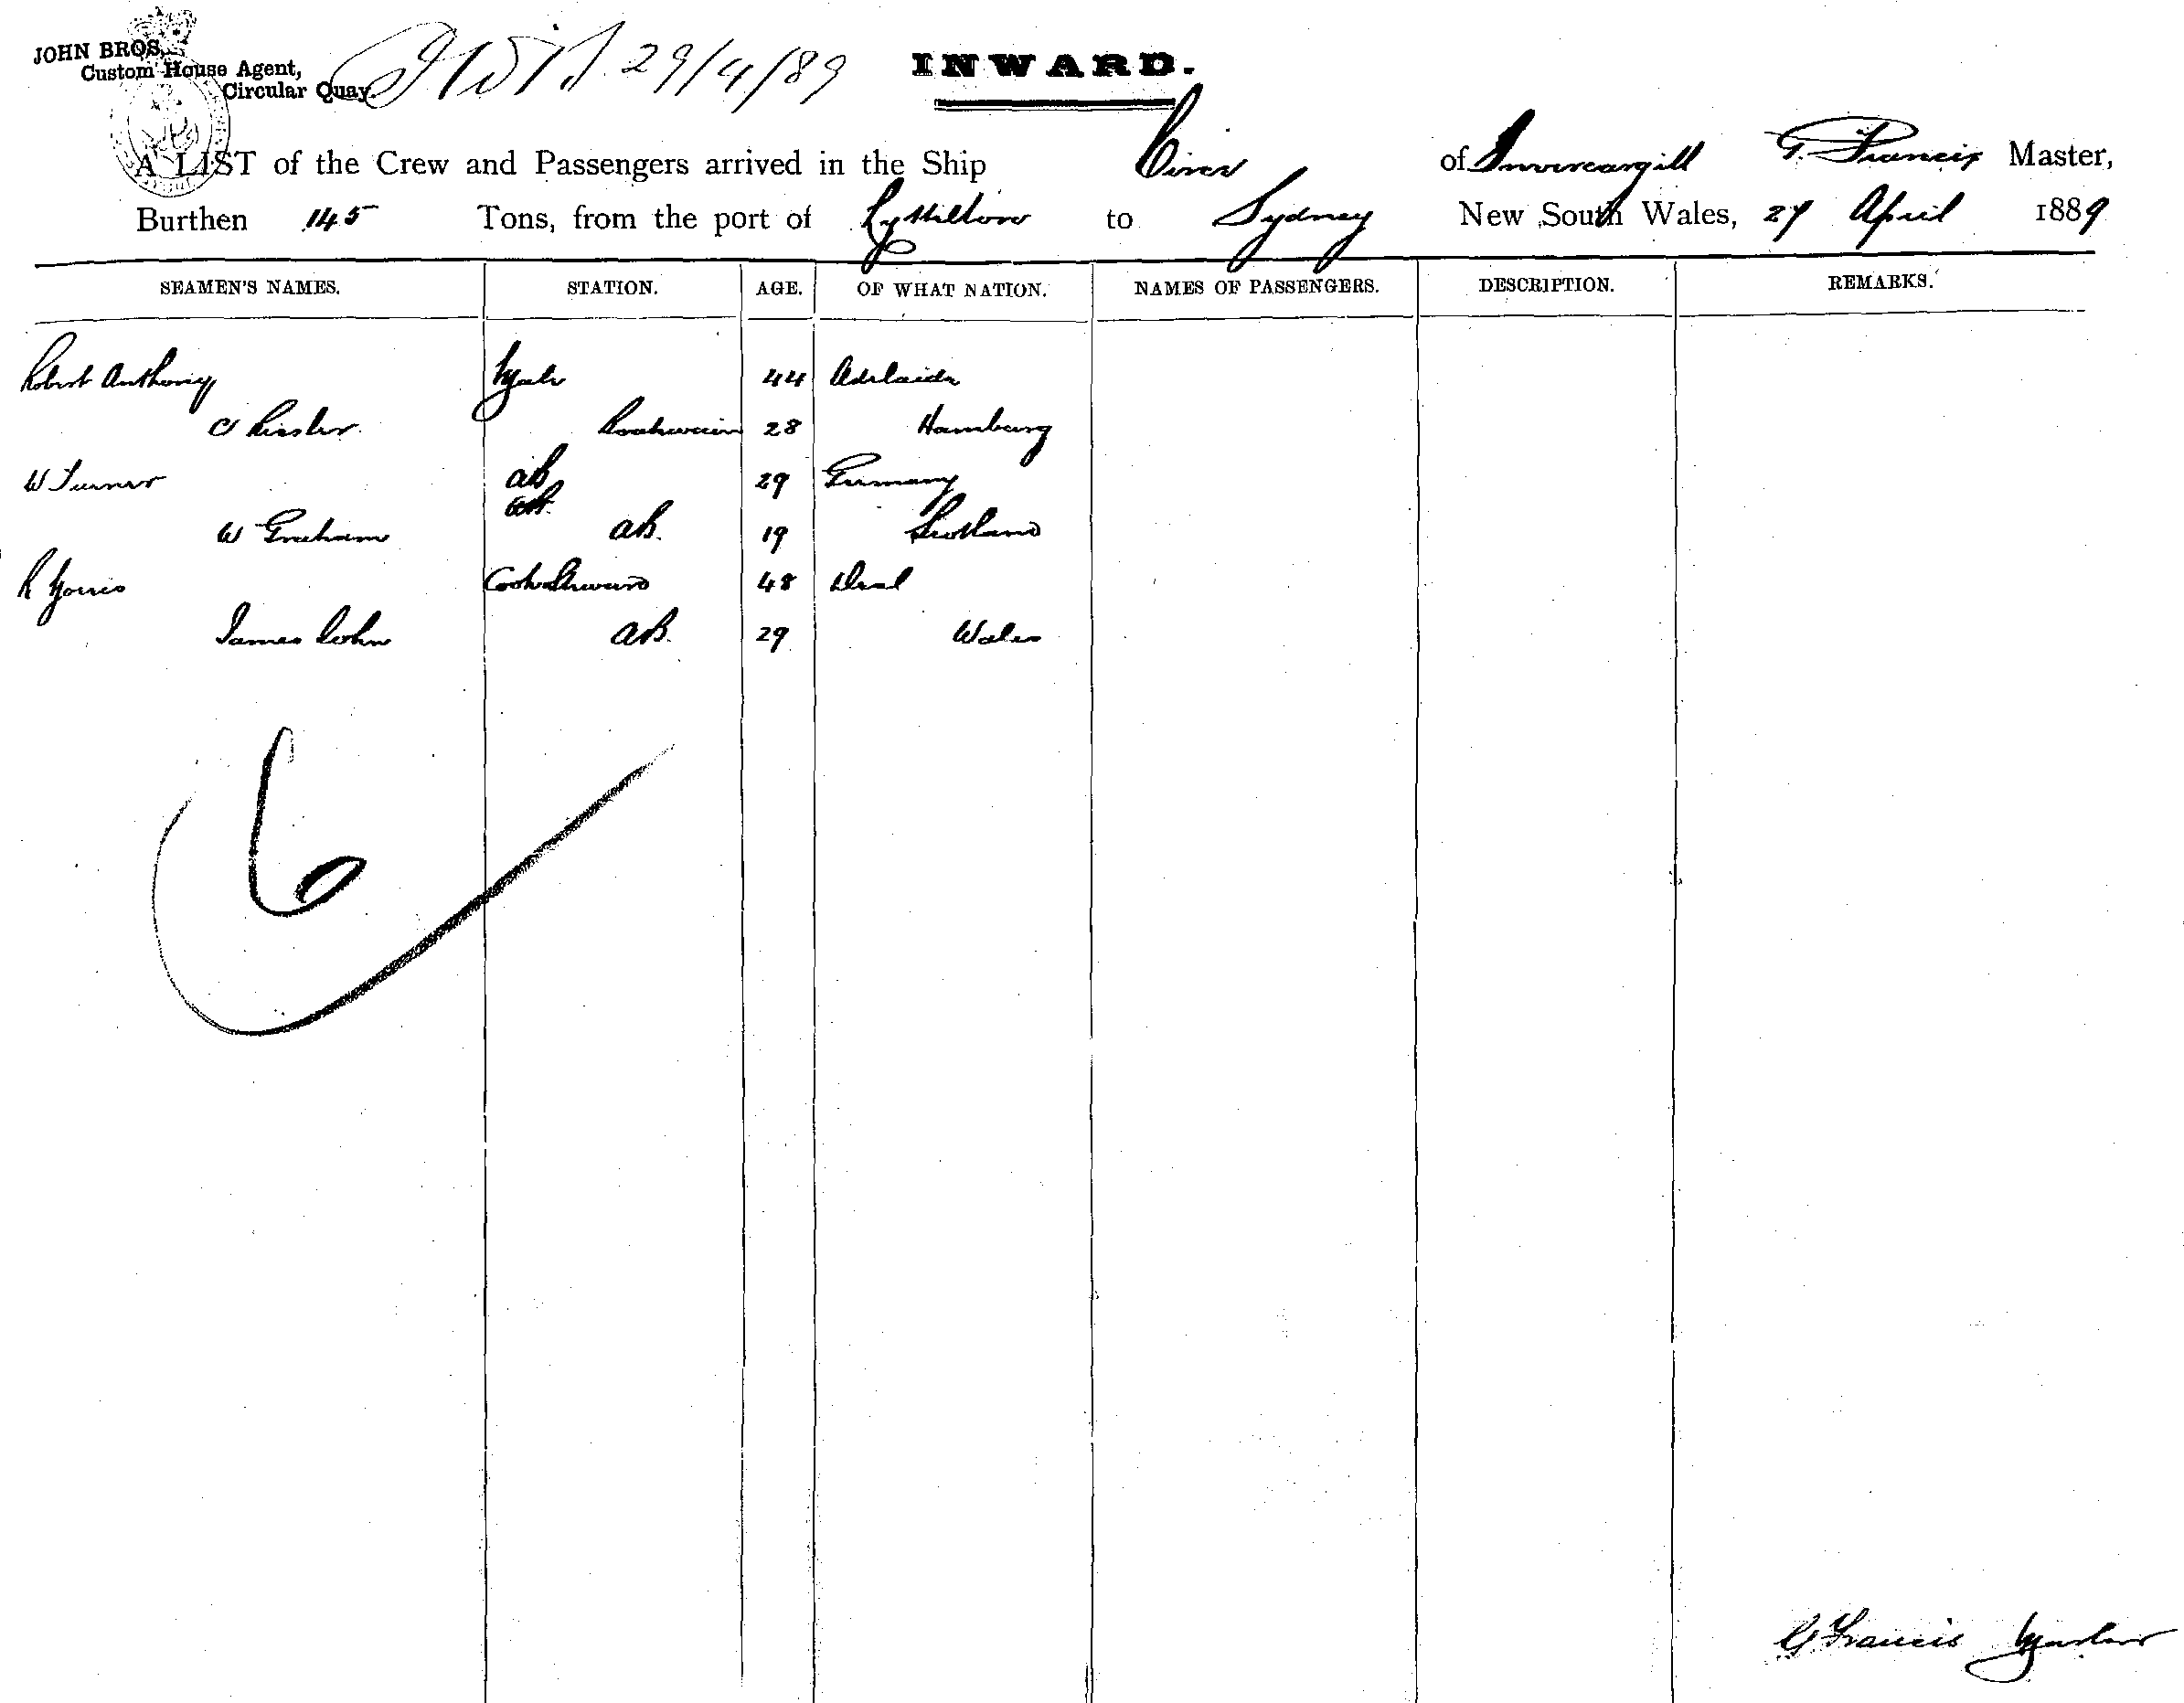 JOHN BROS.
Custom House Agent,
Circular Quay.
29/4/89
INWARD.
A LIST of the Crew and Passengers arrived in the Ship of Invercargill G. Francis Master,
Burthen 145 Tons, from the port of Lyttelton to Sydney New South Wales, 27 April 1889
SEAMEN'S NAMES. STATION. AGE. OF WHAT NATION. NAMES OF PASSENGERS. DESCRIPTION. REMARKS.
Robert Anthony Mate 44 Adelaide
Boatswain 28 Hamburg
W Turner ab 29 Germany
W Graham ab. 19 Scotland
R Cook & Steward 48 Deal
James John ab. 29 Wales
6
G Francis Master